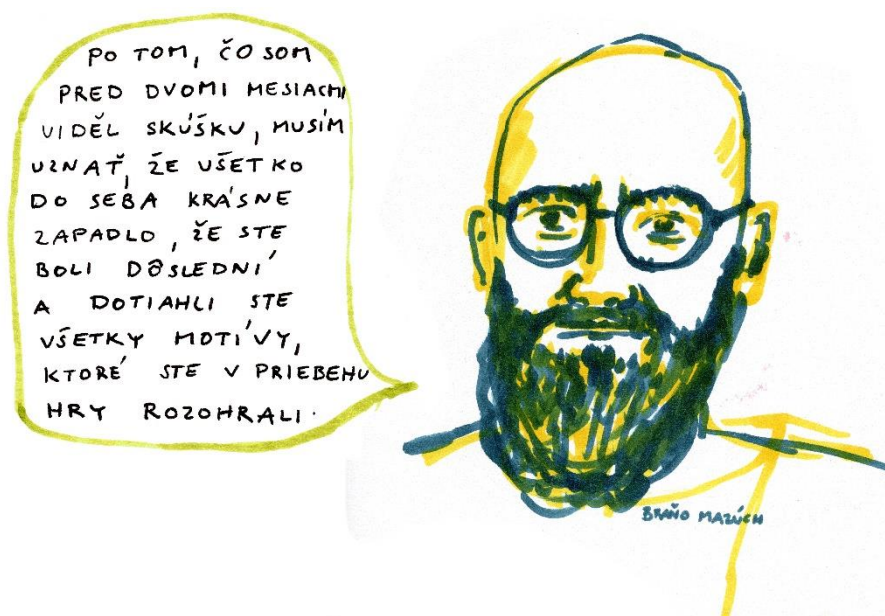 PO TOM, ČO SOM
PRED DVOMI MESIACMI
VIDĚL SKÚŠKU, MUSÍM
UZNAŤ, ŽE VŠETKO
DO SEBA KRÁSNE
ZAPADLO, ŽE STE
BOLI DÔSLEDNÍ
A DOTIAHLI STE
VŠETKY MOTÍVY,
KTORÉ STE V PRIEBEHU
HRY ROZOHRALI.
BRAŇO MAZÚCH